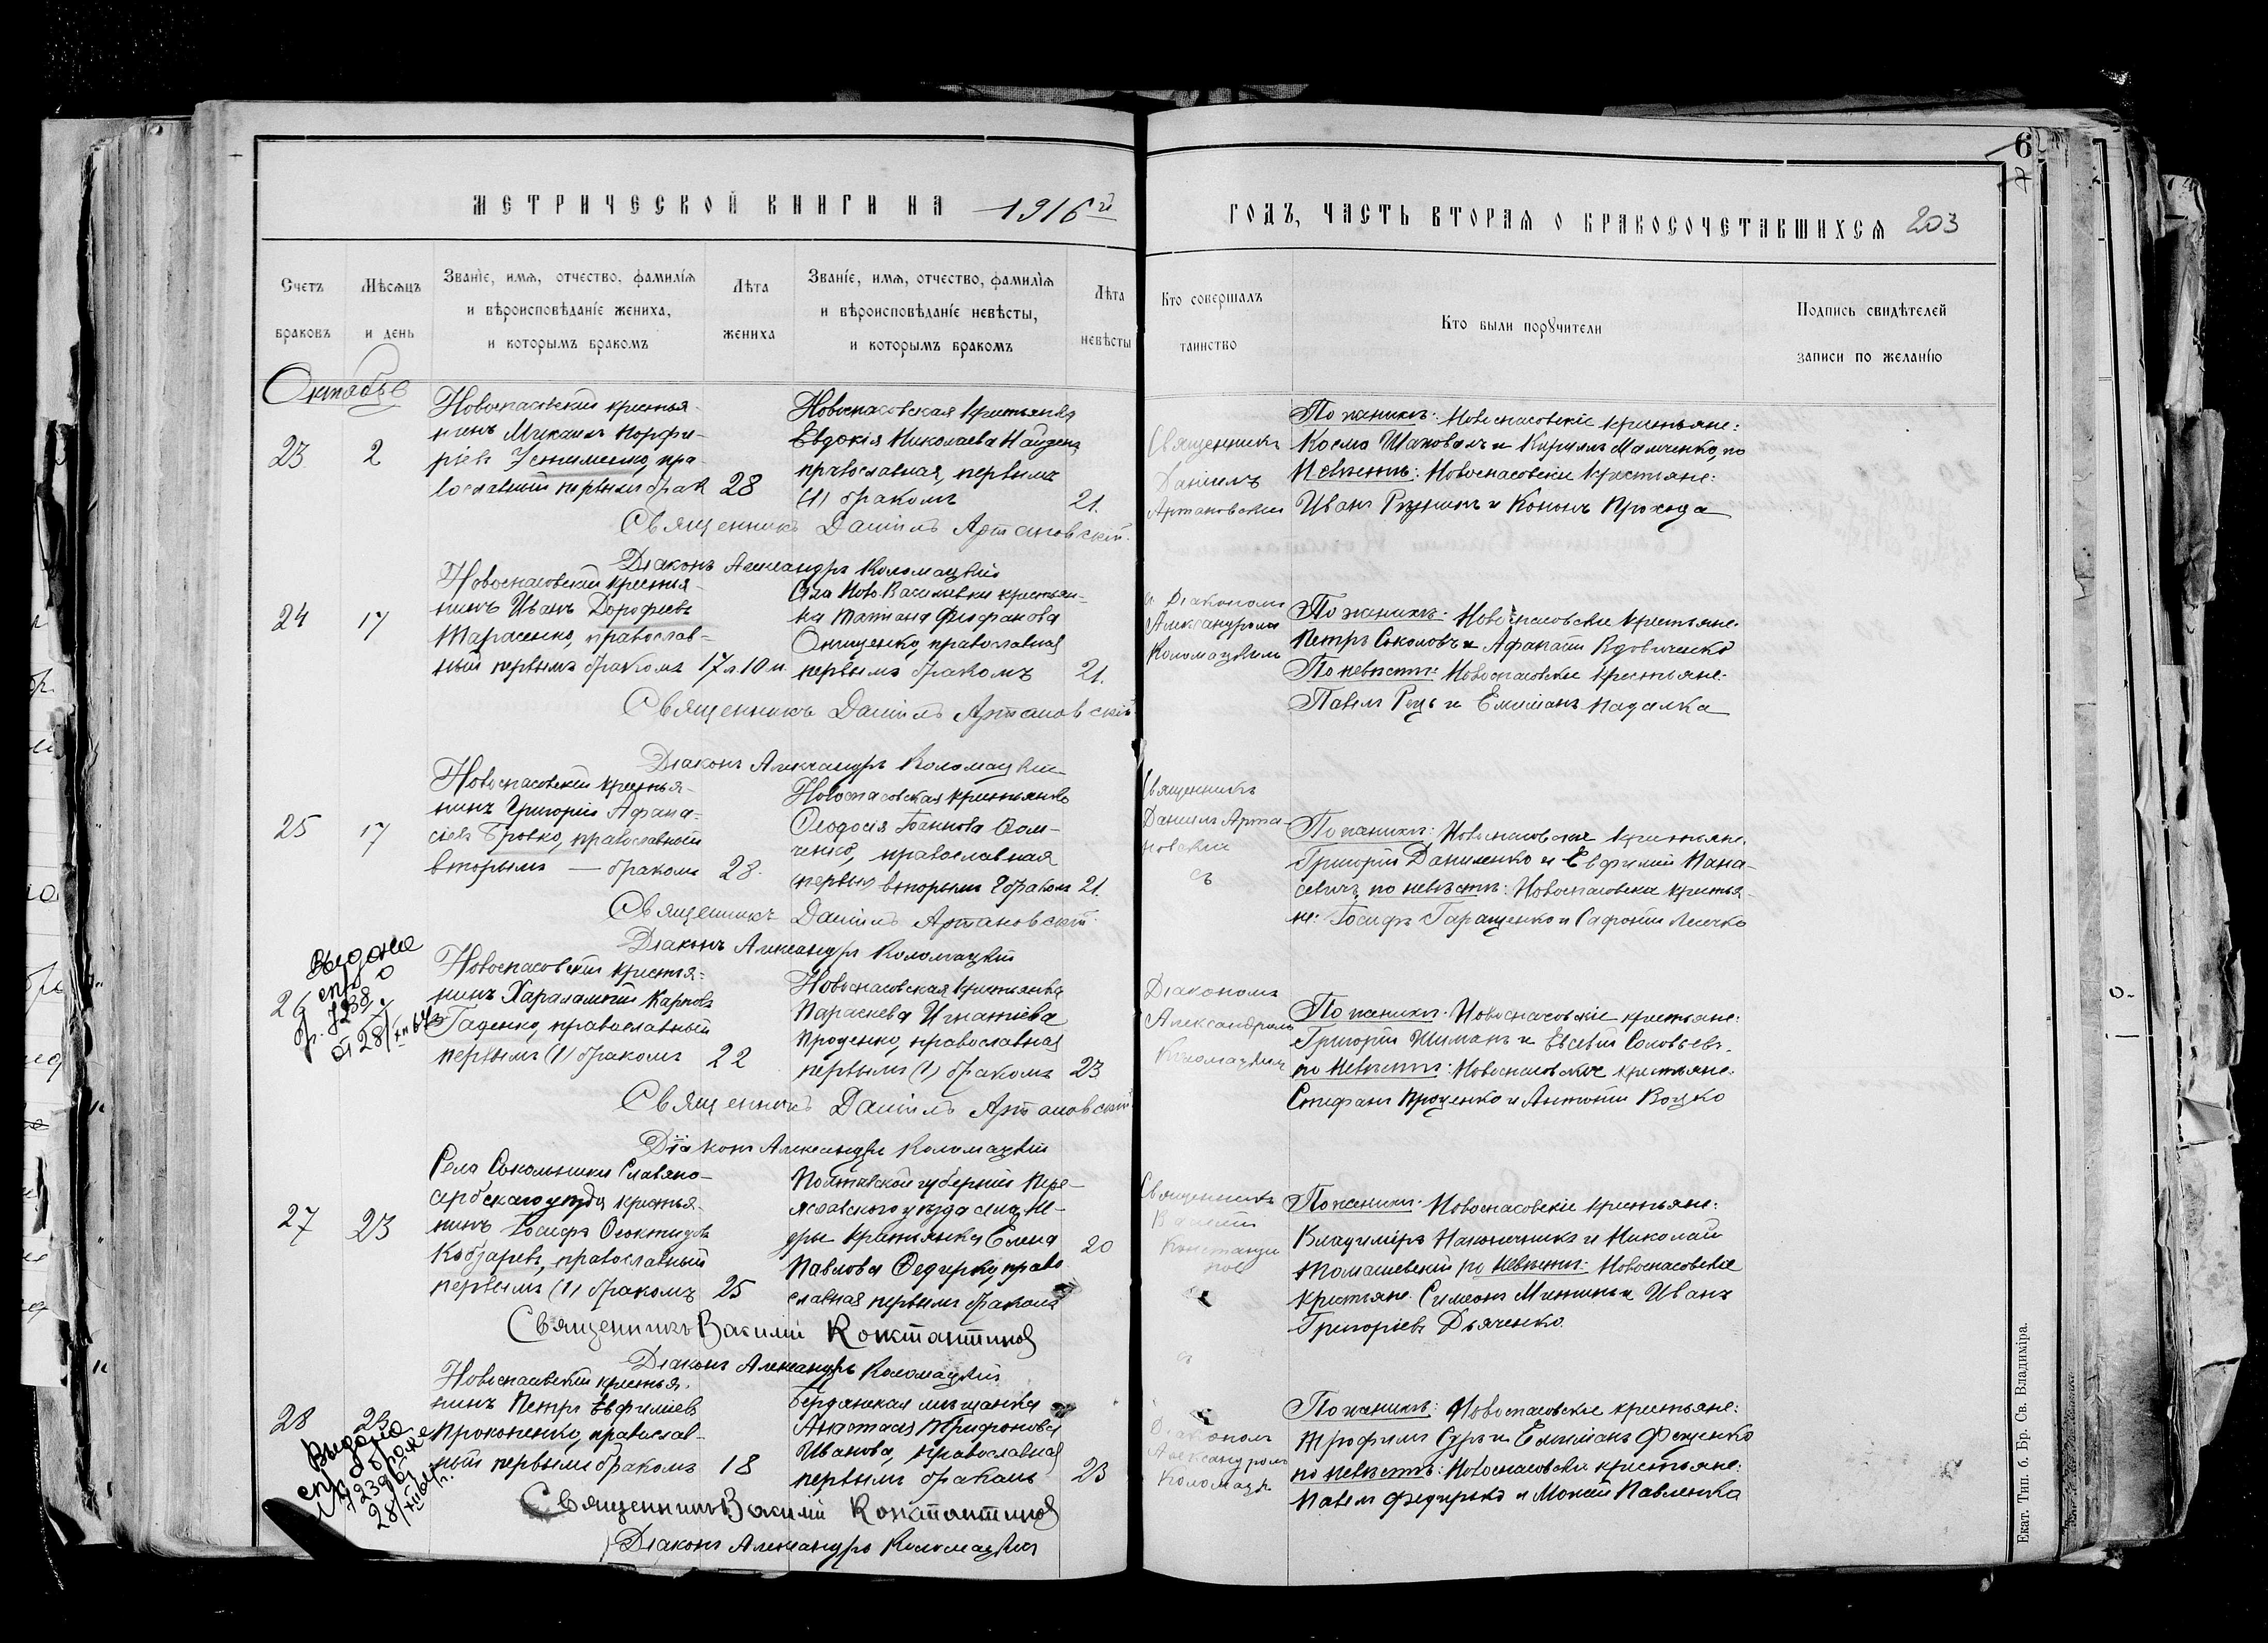 МЕТРИЧЕСКОЙ КНИГИ НА 1916й
ГОДЪ, ЧАСТЬ ВТОРАЯ О БРАКОСОЧЕТАВШИХСЯ 203
6
Счетъ браковъ
Мѣсяцъ и день
Званіе, имя, отчество, фамилія
и вѣроисповѣданіе жениха,
и которымъ бракомъ
Лѣта жениха
Званіе, имя, отчество, фамилія
и вѣроисповѣданіе невѣсты,
и которымъ бракомъ
Лѣта невѣсты
Кто совершалъ таинство
Кто были поручители
Подпись свидѣтелей
записи по желанію
Октябрь
23
2
Новоспасовскій крестья-
нинъ Михаилъ Порфи-
ріевъ Устименко, пра
вославный первымъ брак
28
Новоспасовская крестьянка
Евдокія Николаева
православная, первымъ
(1) бракомъ
21.
Священникъ
Даніилъ
Артановскій
По женихѣ: Новоспасовскіе крестьяне:
Косма Шаповалъ и Кириллъ Мамченко, по
Невѣстѣ: Новоспасовскіе крестьяне:
Иванъ и Кононъ Прохода
Священникъ Даніилъ Артановскій.
Діаконъ Александръ Коломацкій
24
17
Новоспасовскій крестья-
нинъ Иванъ Дорофеевъ
Тарасенко, православ-
ный первымъ бракомъ
17 л 10 м.
Села Ново-Васильевки крестьян-
ка Татіана Феофанова
Онищенко, православная
первымъ бракомъ
21.
и Діакономъ
Александромъ
Коломацкимъ
По женихѣ: Новоспасовскіе крестьяне.
Петръ Соколовъ и Афанасій Вдовиченко
По невѣстѣ: Новоспасовскіе крестьяне.
Павелъ и Емиліанъ Падалка
Священникъ Даніилъ Артановскій
Діаконъ Александръ Коломацкій
25
17
Новоспасовскій крестья-
нинъ Григорій Афана-
сіевъ Бровко, православный
вторымъ — бракомъ
28.
Новоспасовская крестьянка
Феодосія Іоаннова
православная
вторымъ бракомъ
21.
Священникъ
Даніилъ Арта-
новскій
съ
По женихѣ: Новоспасовскіе крестьяне.
Григорій Даниленко и Евфимій Пана-
севичъ, по невѣстѣ: Новоспасовскіе крестья-
не: Іосифъ Гаращенко и Сафоній
Священникъ Даніилъ Артановскій.
Діаконъ Александръ Коломацкій
26
Выдана
спр о
Новоспасовскій крестья-
нинъ Харалампій Карповъ
Гаденко, православный
первымъ (1) бракомъ
22
Новоспасовская крестьянка
Параскева Игнатіева
Проценко, православная
первымъ (1) бракомъ
23
Діакономъ
Александромъ
Коломацкимъ
По женихѣ: Новоспасовскіе крестьяне:
Григорій Шиманъ и Евсевій Соловьевъ.
по Невѣстѣ: Новоспасовскіе крестьяне.
Стефанъ Проценко и Антоній Воцко
Священникъ Даніилъ Артановскій
Діаконъ Александръ Коломацкій
27
23
Села Сокольники Славяно-
сербскаго уѣзда крестья-
нинъ Іосифъ Феоктистовъ
Кобзаревъ, православный
первымъ (1) бракомъ
25
Полтавской губерніи Пере-
яславского уѣзда села
крестьянка Елена
Павлова Федирко, право
славная первымъ бракомъ
20
Священникъ
Василій
Константи
нов
По женихѣ: Новоспасовскіе крестьяне:
Владиміръ Наконечникъ и Николай
Томашевскій по Невѣстѣ: Новоспасовскіе
крестьяне: Симеонъ и Иванъ
Григоріевъ Дьяченко.
Священникъ Василій Константиновъ
Діаконъ Александръ Коломацкій
28
23
Выдана
спр о браке
Новоспасовскій крестья.
нинъ Петръ Евфиміевъ
Прокопенко, православ-
ный первымъ бракомъ
18
Бердянская мѣщанка
Анастасія Трифонова
Иванова, православная
первымъ бракомъ
23
съ
Діакономъ
Александромъ
Коломацк
По женихѣ: Новоспасовскіе крестьяне:
Трофимъ и Емиліанъ Фещенко
по невѣстѣ: Новоспасовскіе крестьяне:
Павелъ Федирко и Моисей Павленко
Священникъ Василій Константиновъ
Діаконъ Александръ Коломацкій
Екат. Тип. б. Бр. Св. Владиміра.